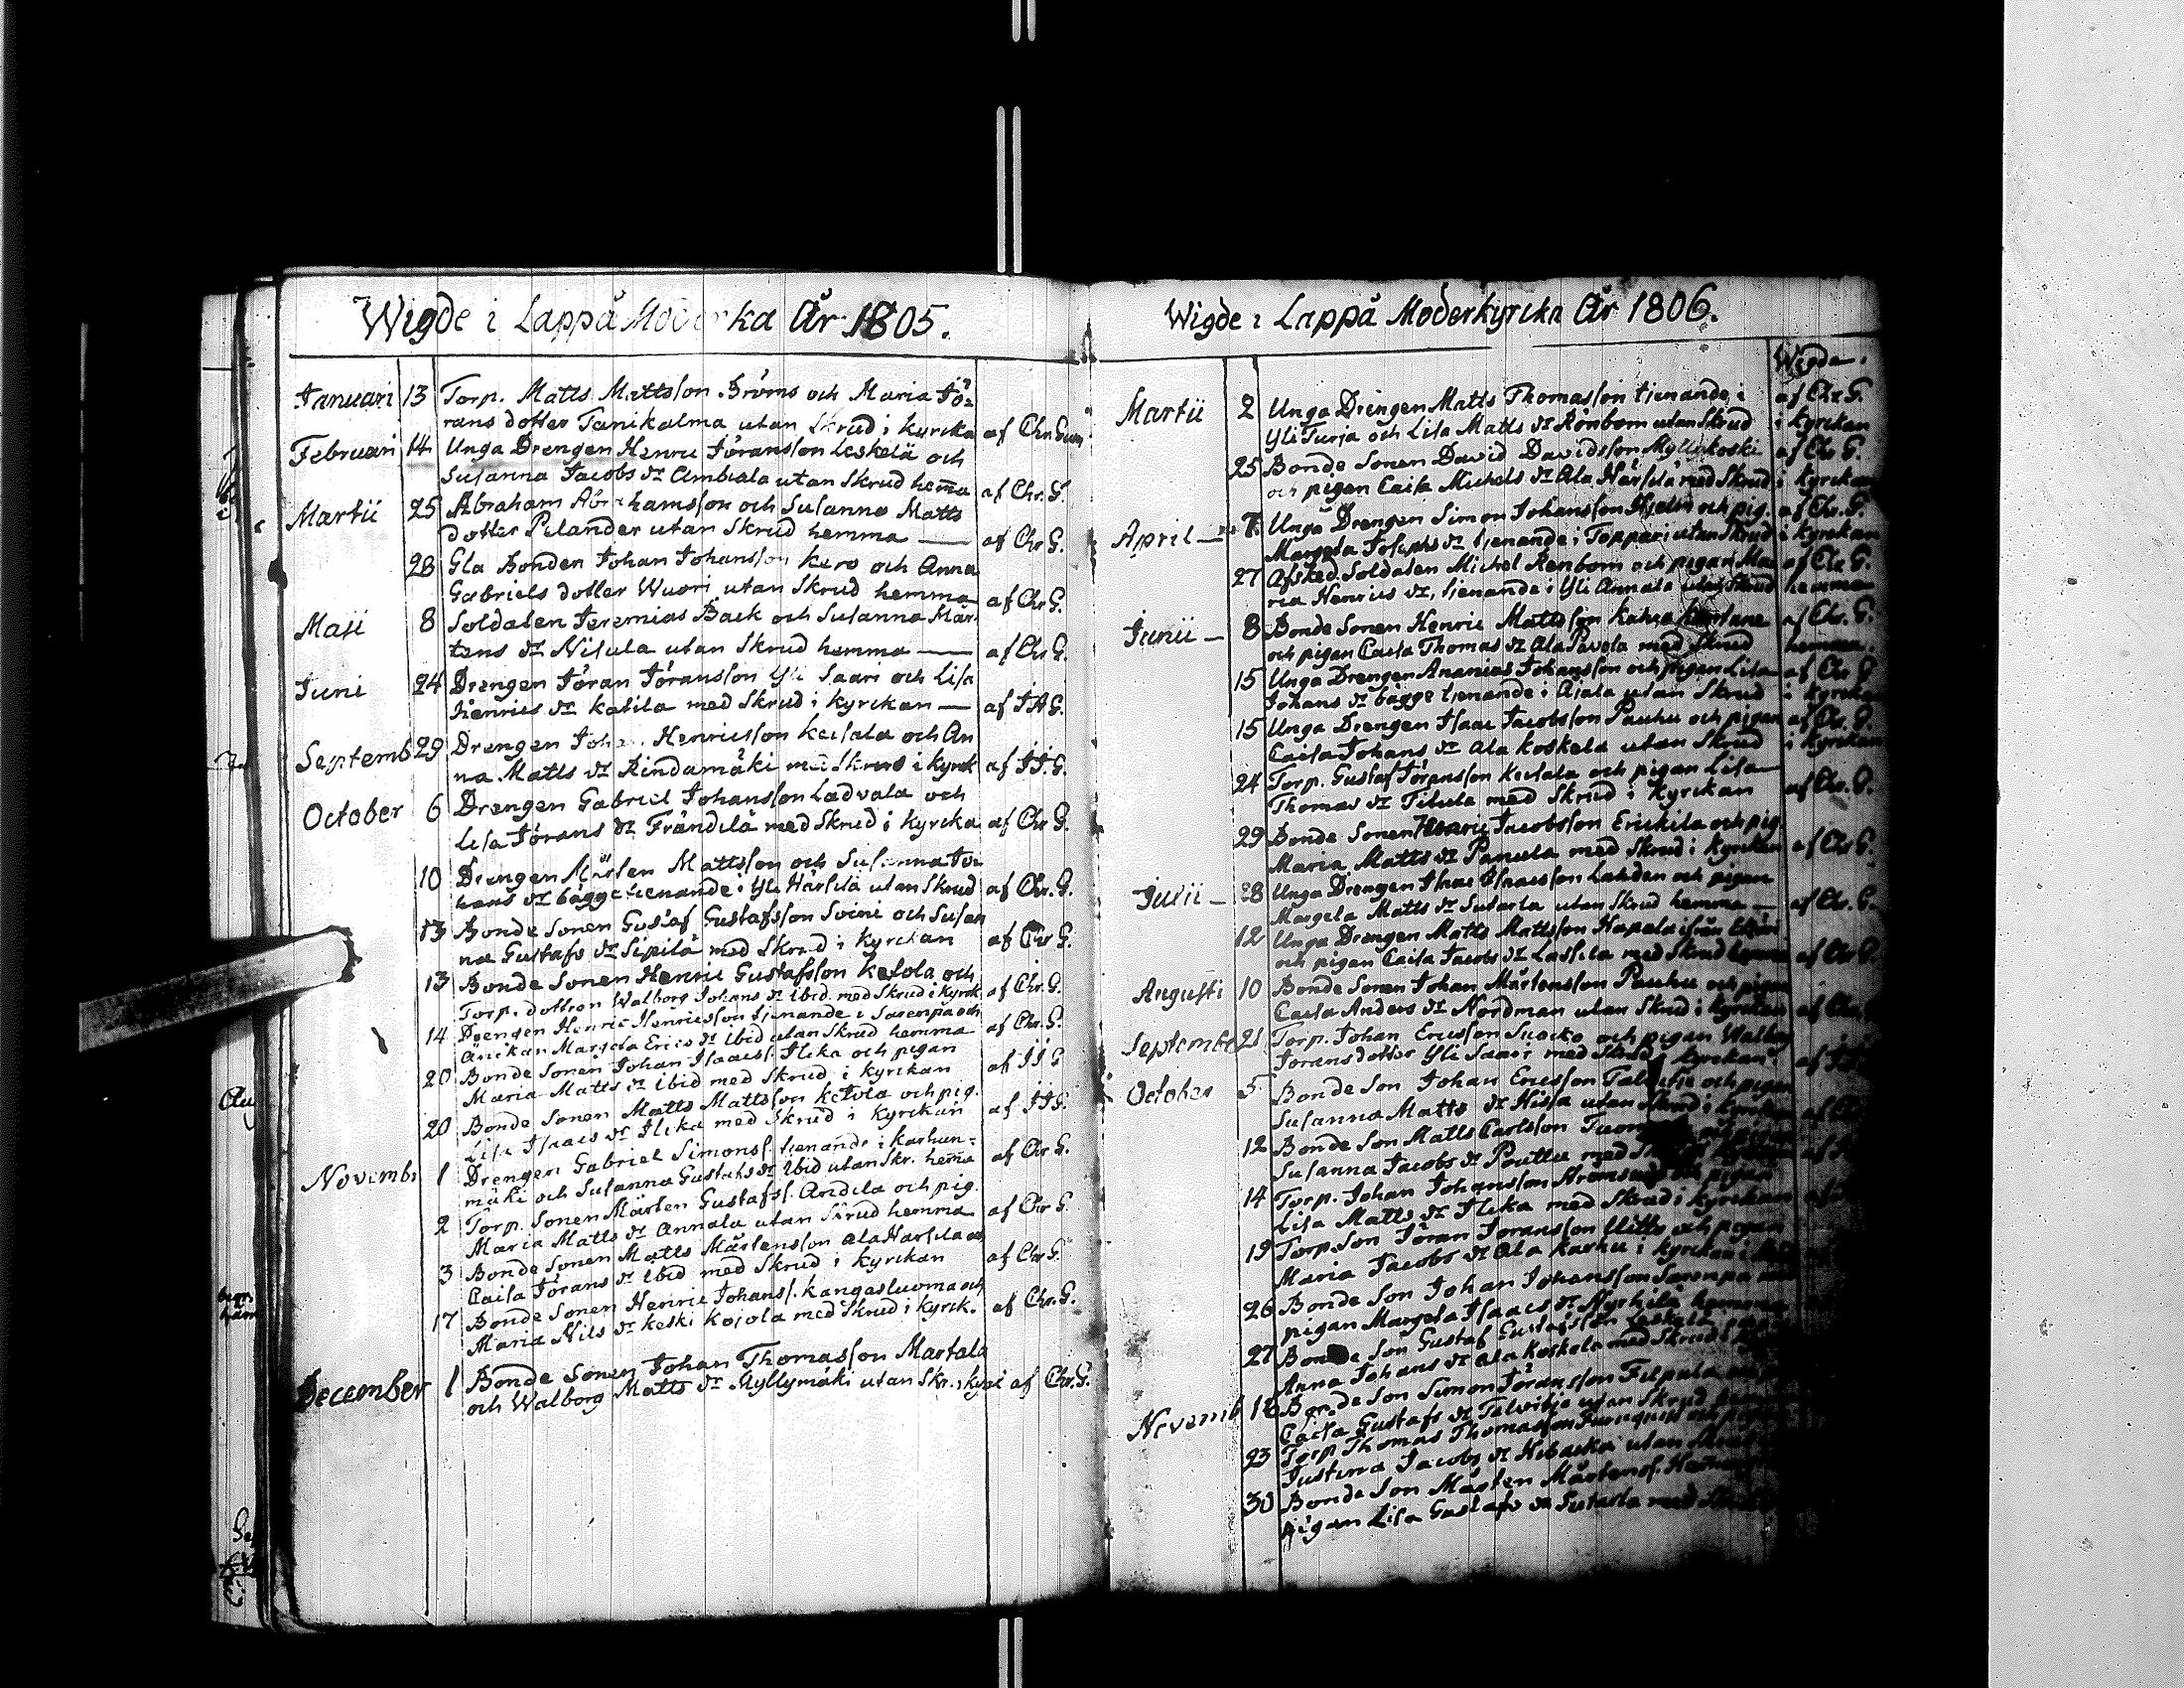 Wigde i Lappå Moderka År 1805.
Januari 13 Torp. Matts Mattsson Bröms och Maria Jö-
rans dotter Tanikalma utan Skrud i kyrcka af Chr.
Februari 14 Unga Drengen Henric Jöransson Leskelä och
Susanna Jacobs dr Ambiala utan Skrud hema af Chr. G.
Martii 25 Abraham Abrahamsson och Susanna Matts
dotter Pelander utan Skrud hemma — af Chr G.
28 Gla Bonden Johan Johansson Kero och Anna
Gabriels dotter Wuori utan Skrud hemma af Chr G.
Maji 8 Soldaten Jeremias Back och Susanna Mår
tens dr Nisula utan Skrud hemma — af Chr G.
Juni 24 Drengen Jöran Jöransson Yli Saari och Lisa
Henrics dr Katila med Skrud i kyrckan — af JAG.
Septemb 29 Drengen Joha. Henricsson Keisala och An
na Matts dr Rindamäki med Skrud i kyrck af JJ.G.
October 6 Drengen Gabriel Johansson Ladvala och
Lisa Jörans dr Frändilä med Skrud i kyrcka af Chr G.
10 Drengen Mårten Mattsson och Susanna Jo
hans dr bägge tienande i Yli Härsilä utan Skrud af Chr. G.
13 Bonde Sonen Gustaf Gustafsson Soini och Susan
na Gustafs dr Sipilä med Skrud i kyrckan af Chr G.
13 Bonde Sonen Henric Gustafsson Ketola och
Torp. dottren Walborg Johans dr ibid. med Skrud i kyrck af Chr. G.
14 Drengen Henric Henricsson tjenande i Sarenpä och
Änckan Margeta Erics dr ibid utan Skrud hemma af Chr. G.
20 Bonde Sonen Johan Isaacs. Ilcka och pigan
Maria Matts dr ibid med Skrud i kyrckan af JJ G
20 Bonde Sonen Matts Mattsson Ketola och pig.
Lisa Isaacs dr Ilcka med Skrud i kyrckan af JJG.
Novemb. 1 Drengen Gabriel Simons. tienande i Karhun-
mäki och Susanna Gustafs dr ibid utan Skr. hema af Chr G.
2 Torp. Sonen Mårten Gustafs. Andila och pig.
Maria Matts dr Annala utan Skrud hemma af Chr G.
3 Bonde Sonen Matts Mårtensson Ala Harsila och
Caisa Jörans dr ibid med Skrud i kyrckan af Chr G.
17 Bonde Sonen Henric Johans. Kangasluoma och
Maria Nils dr Keski Kojola med Skrud i kyrck. af Chr. G.
December 1 Bonde Sonen Johan Thomasson Martala
och Walborg Matts dr Myllymäki utan Skr. i kyrc af Chr. G.
Wigde i Lappå Moderkyrcka År 1806.
Wigde.
Martii 2 Unga Drengen Matts Thomasson tjenande i af Chr G.
Yli Turja och Lisa Matts dr Rönborn utan Skrud i kyrckan
25 Bonde Sonen David Davidsson Myllykoski af Chr G.
och pigan Caisa Michels dr Ala Härsilä med Skrud i kyrckan
April — 7 Unga Drengen Simon Johansson Hjelm och pig. af Chr. G.
Margeta Josephs dr tjenande i Toppari utan Skrud i kyrckan
27 Afsked. Soldaten Michel Renborn och pigan Ma af Chr G.
ria Henrics dr, tjenande i Yli Annala utan Skrud hemma
Junii — 8 Bonde Sonen Henric Mattsson Kahra af Chr. G.
och pigan Caisa Thomas dr Ala Pavola med Skrud hemma.
15 Unga Drengen Ananias Johansson och pigan Lisa af Chr G
Johans dr bägge tjenande i Ajala utan Skrud i kyrckan
15 Unga Drengen Isaac Jacobsson Pauhu och pigan af Chr. G.
Caisa Johans dr Ala Koskela utan Skrud i kyrckan
24 Torp. Gustaf Jöransson Keisala och pigan Lisa
Thomas dr Titula med Skrud i kyrckan af Chr. G.
29 Bonde Sonen Henric Jacobsson Erickila och pig.
Maria Matts dr Panula med Skrud i kyrckan af Chr G.
Julii — 28 Unga Drengen Isaac Isaacsson Lahden och pigan
Margeta Matts dr Sutarla utan Skrud hemma — af Chr. G.
12 Unga Drengen Matts Mattsson Hapala ifrån
och pigan Caisa Jacobs dr Lassila med Skrud hemma af Chr G.
Augusti 10 Bonde Sonen Johan Mårtensson Pauhu och pigan
Caisa Anders dr Nordman utan Skrud i kyrckan af Chr.
Septembr 21 Torp. Johan Ericsson Suocko och pigan Walborg
Jörans dotter Yli Saari med Skrud i kyrckan
October 5 Bonde Son Johan Ericsson Talvitie och pigan
Susanna Matts dr Hissa utan Skrud i kyrckan
12 Bonde Son Matts Carlsson
Susanna Jacobs dr Pouttu med
14 Torp. Johan Johansson och pigan
Lisa Matts dr Ilcka med Skrud i kyrckan
19 Torp. Son Jöran Jöransson Ulitto och pigan
Maria Jacobs dr Ala Karhu i kyrckan
26 Bonde Son Johan Johansson Sarenpä
pigan Margeta Isaacs dr Hyrhilä
27 Bonde Son Gustaf Gustafsson Leskelä
Anna Johans dr Ala Koskela med Skrud
Novemb 12 Bonde Son Simon Jöransson Filpula
Caisa Gustafs dr Talvitie utan Skrud
23 Torp Thomas Thomasson och
Justina Jacobs dr utan Skrud
30 Bonde Son Mårten Mårtens.
pigan Lisa Gustafs dr Sutarla med